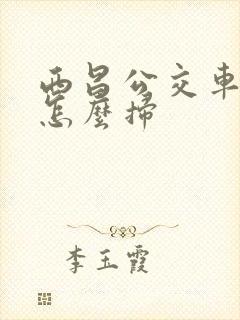 西昌公交車
怎麼掃
李玉霞